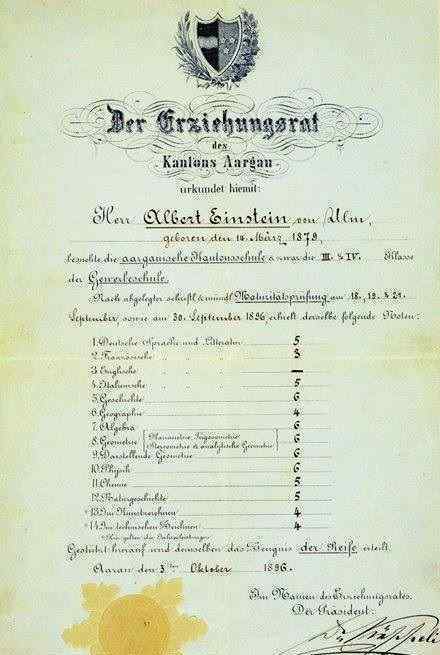 Der Erziehungsrat
des
Kantons Aargau
urkundet hiemit:
Herr Albert Einstein von Ulm,
geboren den 14. März, 1879,
besuchte die aargauische Kantonsschule & zwar die III. & IV. Klasse
der Gewerbeschule.
Nach abgelegter schriftl. & mündl. Maturitätsprüfung am 18., 19. & 21.
September, sowie am 30. September 1896, erhielt derselbe folgende Noten:
1. Deutsche Sprache und Litteratur 5
2. Französische „ „ „ 3
3. Englische „ „ „ —
4. Italienische „ „ „ 5
5. Geschichte 6
6. Geographie 4
7. Algebra 6
8. Geometrie (Planimetrie, Trigonometrie, Stereometrie & analytische Geometrie) 6
9. Darstellende Geometrie 6
10. Physik 6
11. Chemie 5
12. Naturgeschichte 5
*13. Im Kunstzeichnen 4
*14. Im technischen Zeichnen 4
* Hier gelten die Jahresleistungen.
Gestützt hierauf wird demselben das Zeugnis der Reife erteilt.
Aarau den 3ten Oktober 1896.
Im Namen des Erziehungsrates,
Der Präsident: